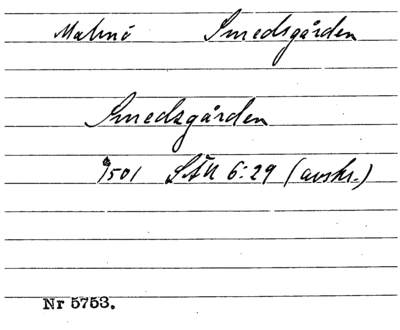 Malmö Smedsgården
Smedsgården
1501 SÄU 6:29 (avskr.)
Nr 5753.